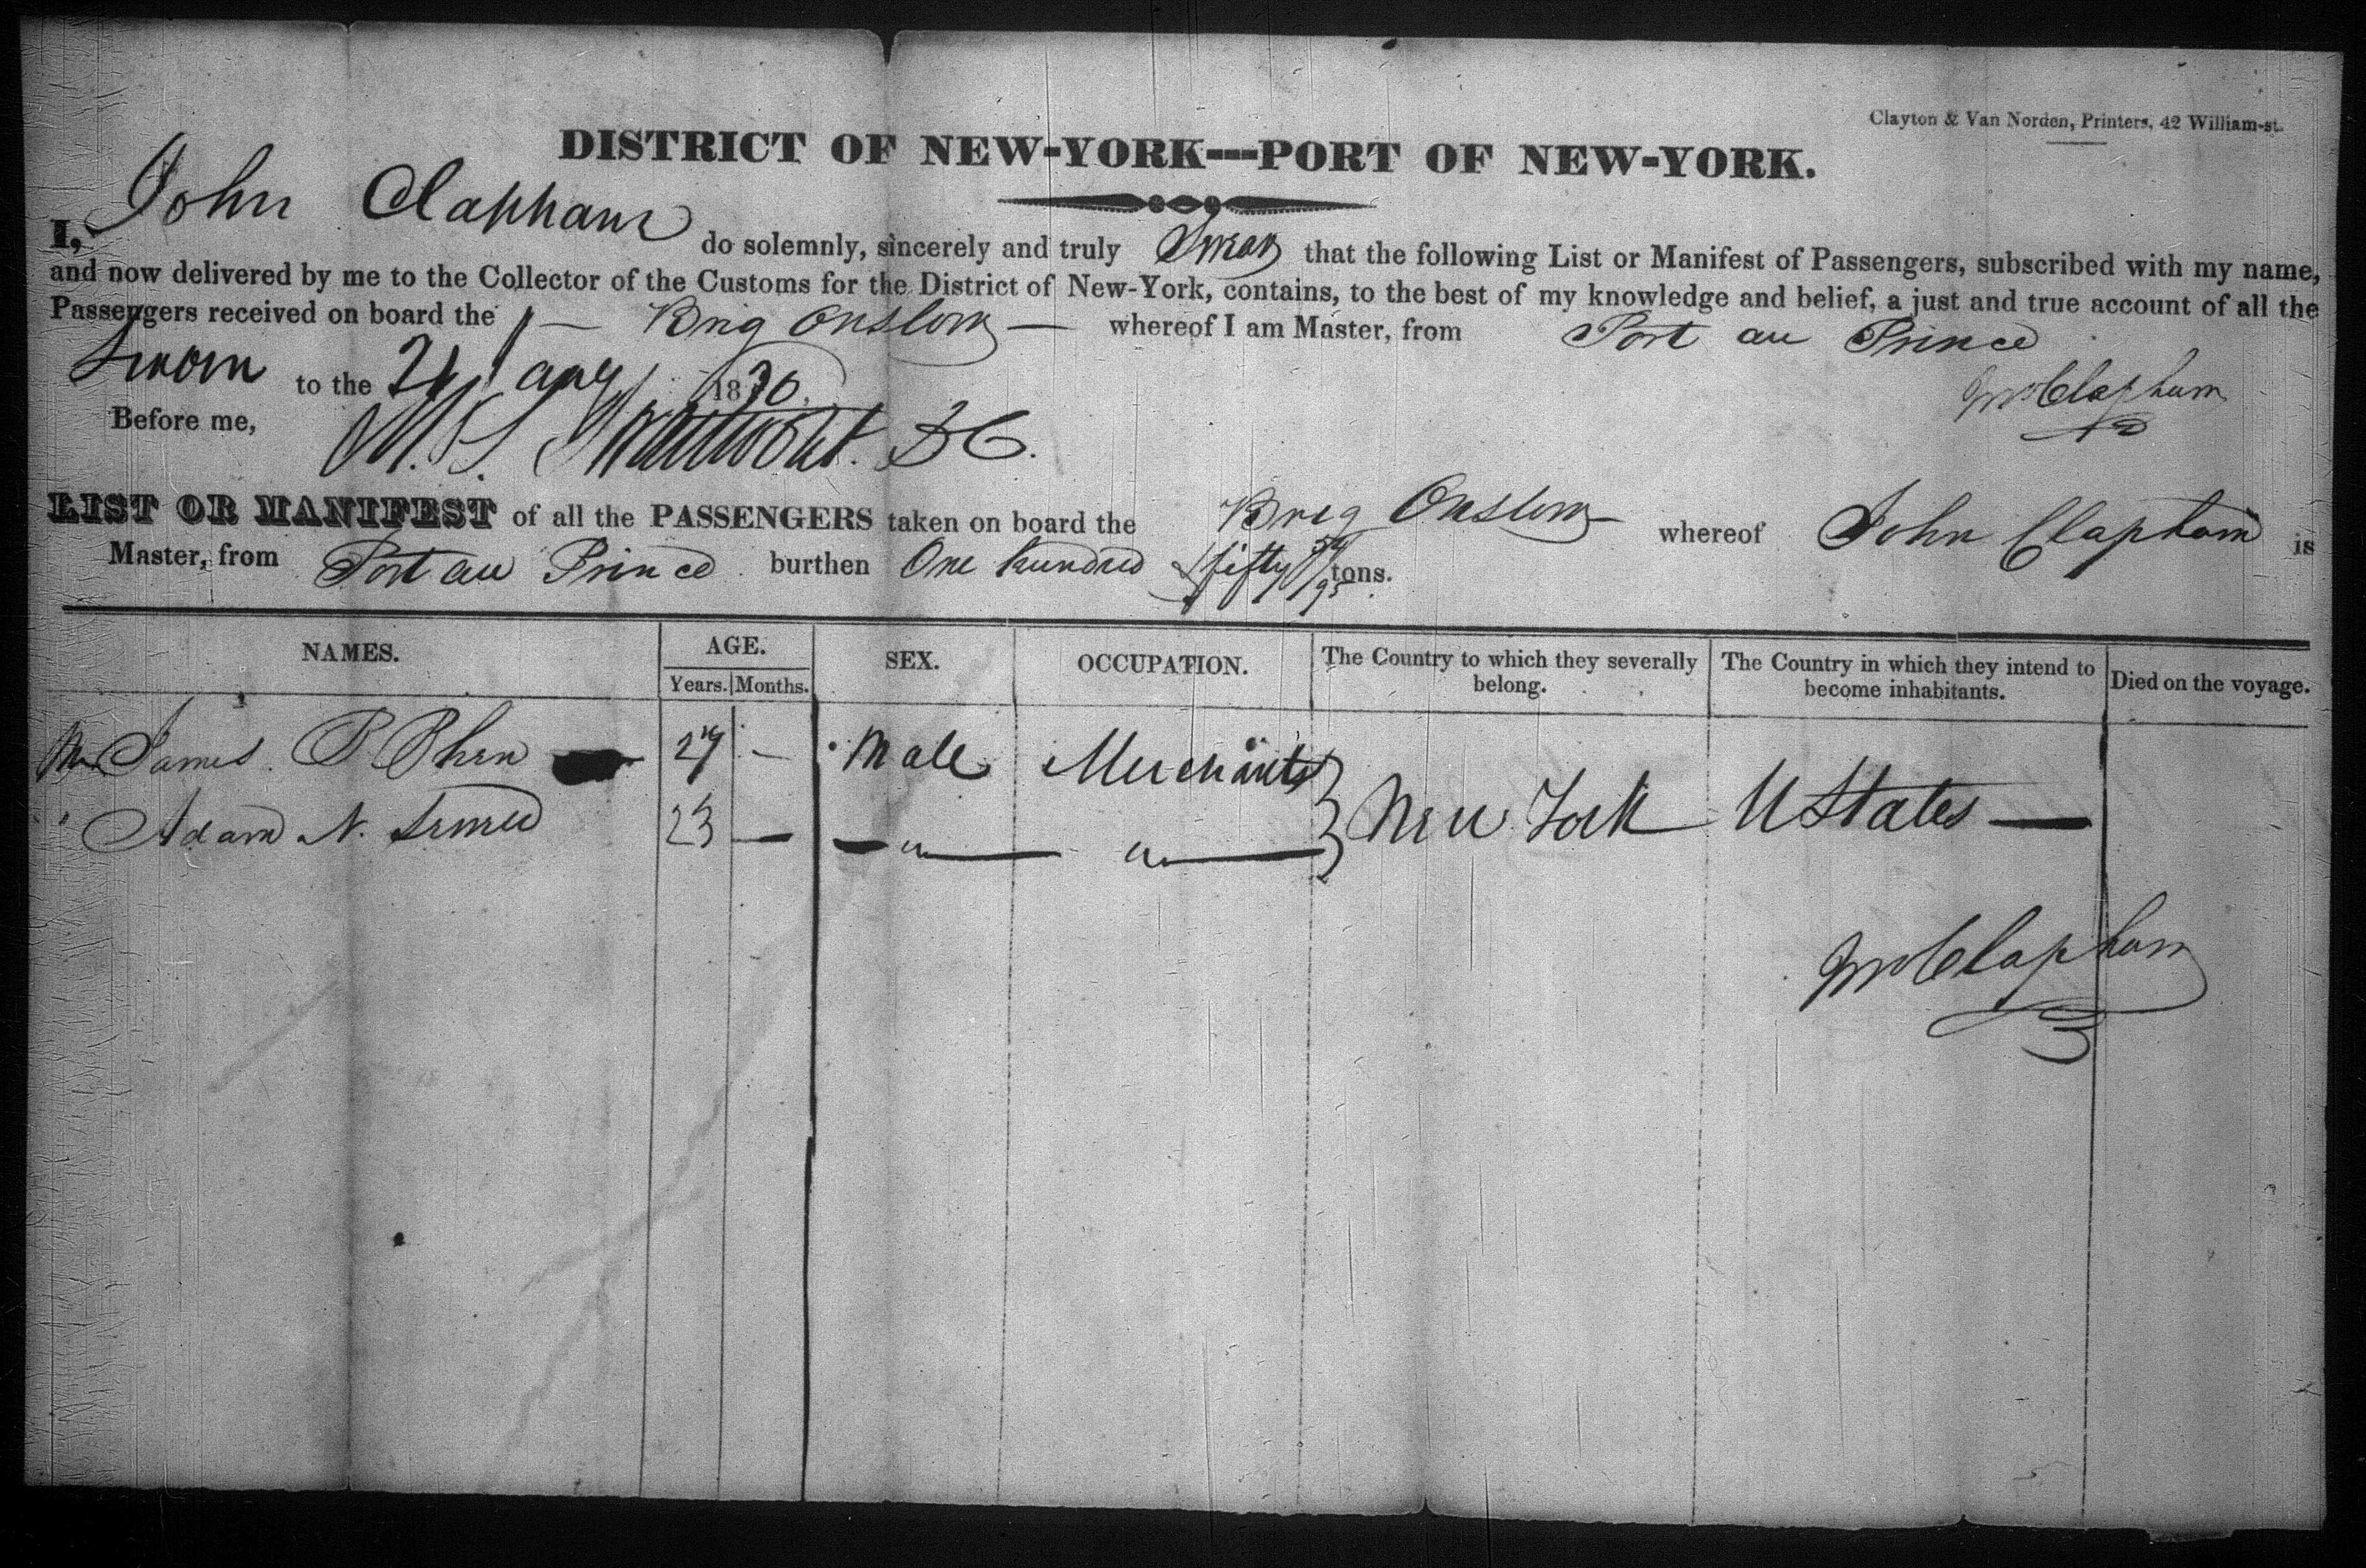 Clayton & Van Norden, Printers, 42 William-st.
DISTRICT OF NEW-YORK---PORT OF NEW-YORK.
I, John Clapham do solemnly, sincerely and truly Swear that the following List or Manifest of Passengers, subscribed with my name,
and now delivered by me to the Collector of the Customs for the District of New-York, contains, to the best of my knowledge and belief, a just and true account of all the
Passengers received on board the Brig Onslow whereof I am Master, from Port au Prince
Sworn to the 21 1830 Jno Clapham
Before me,
LIST OR MANIFEST of all the PASSENGERS taken on board the Brig Onslow whereof John Clapham is
Master, from Port au Prince burthen One hundred & fifty /95 tons.
NAMES. AGE. SEX. OCCUPATION. The Country to which they severally belong. The Country in which they intend to become inhabitants. Died on the voyage.
Years. Months.
Mr James P 27 — Male Merchants
New York U States —
" Adam N. 23 — — " — " —
Jno Clapham